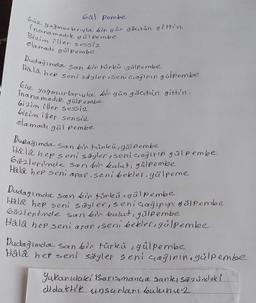 Gül Pembe
Güz yağmurlarıyla bir gün göçtün gittin.
İnanamadık gülpembe
Bizim iller sessiz
olamadı gülpembe
Dudağımda son bir türkü gülpembe
Hâlâ hep seni söyler seni çağırır gülpembe
Güz yağmurlarıyla bir gün göçtün gittin.
İnanamadık gülpembe
bizim iller sessiz
bizim iller sensiz
olamadı gül pembe
Dudağımda son bir türkü, gülpembe
Hâlâ hep seni söyler, seni çağırır gülpembe
Gözlerimde son bir bulut, gülpembe
Hâlâ hep seni arar, seni bekler, gülpeme
Dudağımda son bir türkü, gülpembe
Hâlâ hep seni söyler, seni çağırır gülpembe
Gözlerimde son bir bulut, gülpembe
Hâlâ hep seni arar, seni bekler, gülpembe
Dudağımda son bir türkü, gülpembe
Hâlâ hep seni söyler seni çağırır, gülpembe
Yukarıdaki Barış manço'a şarkı sözündeki
didaktik unsurları bulunuz